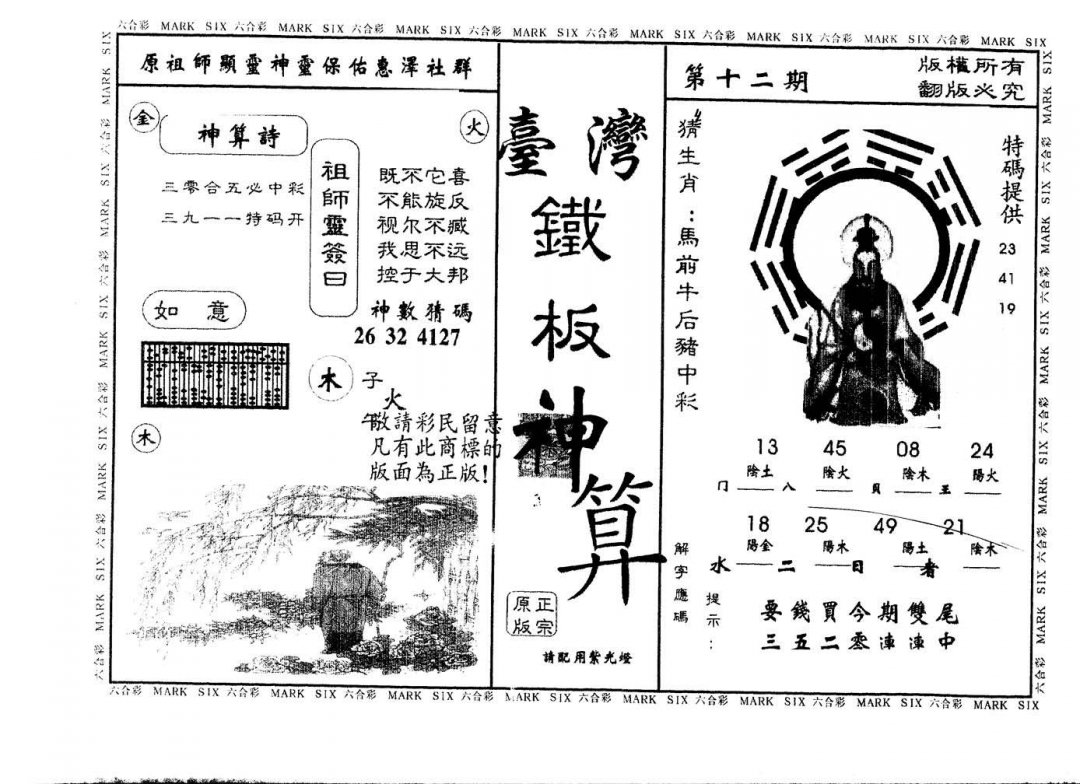 六合彩 MARK SIX 六合彩 MARK SIX 六合彩 MARK SIX 六合彩 MARK SIX 六合彩 MARK SIX 六合彩 MARK SIX 六合彩 MARK SIX 六合彩 MARK SIX
原祖師顯靈神靈保佑惠澤社群
金
神算詩
火
三零合五必中彩
三九一一特码开
祖師靈簽曰
既不它喜
不能旋反
视尔不臧
我思不远
控于大邦
神數猜碼
26 32 4127
如意
木
子
火
午
敬請彩民留意
凡有此商標的
版面為正版!
木
臺灣
鐵
板
神
算
3
正宗
原版
請配用紫光燈
第十二期
版權所有
翻版必究
猜生肖:馬前牛后豬中彩
特碼提供
23
41
19
13 45 08 24
陰土 陰火 陰木 陽火
冂 八 貝 王
18 25 49 21
陽金 陽木 陽土 陰木
水 二 日 者
解字應碼
提示:
要錢買今期雙尾
三五二零湩湩中
六合彩 MARK SIX 六合彩 MARK SIX 六合彩 MARK SIX 六合彩 MARK SIX 六合彩 MARK SIX 六合彩 MARK SIX 六合彩 MARK SIX 六合彩 MARK SIX